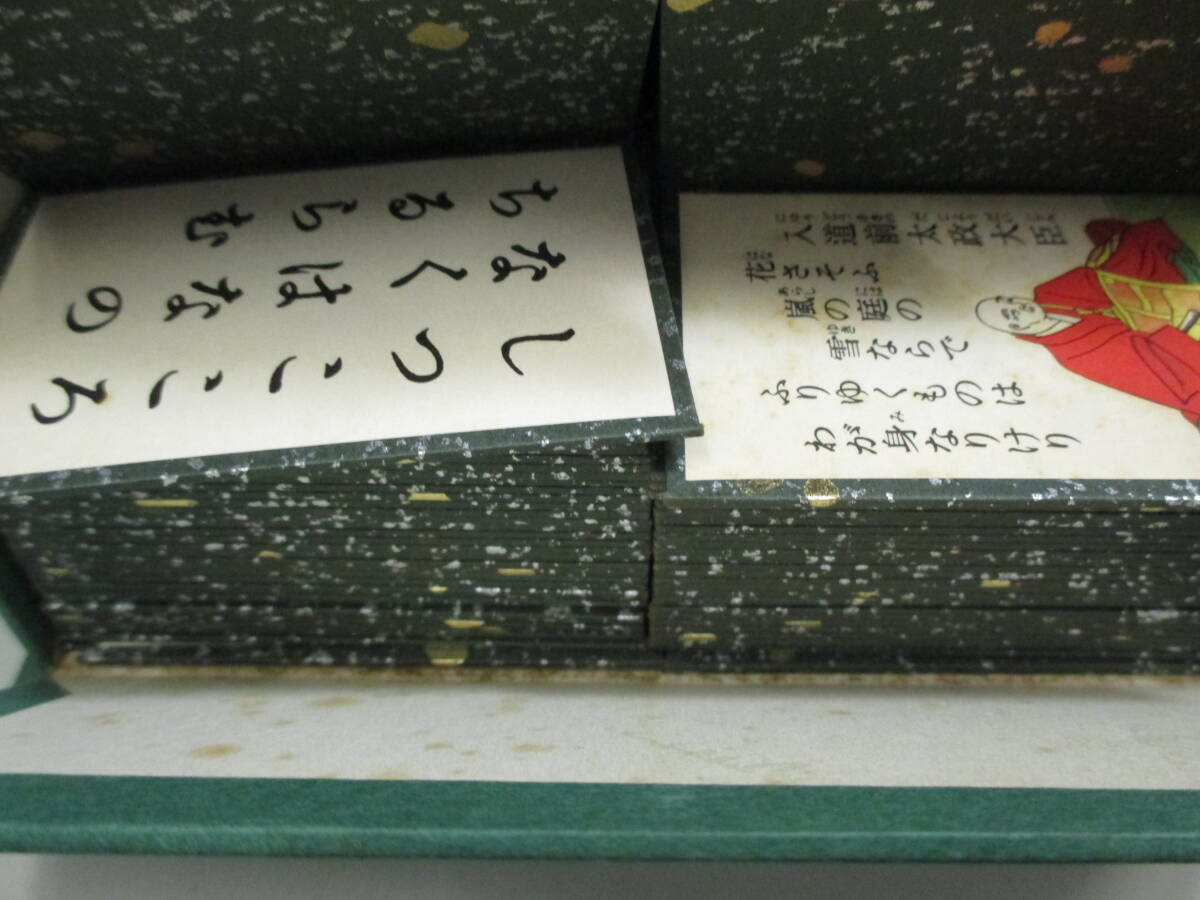 しつこころ
なくはなの
ちるらむ
入道前太政大臣
花さそふ
嵐の庭の
雪ならで
ふりゆくものは
わが身なりけり